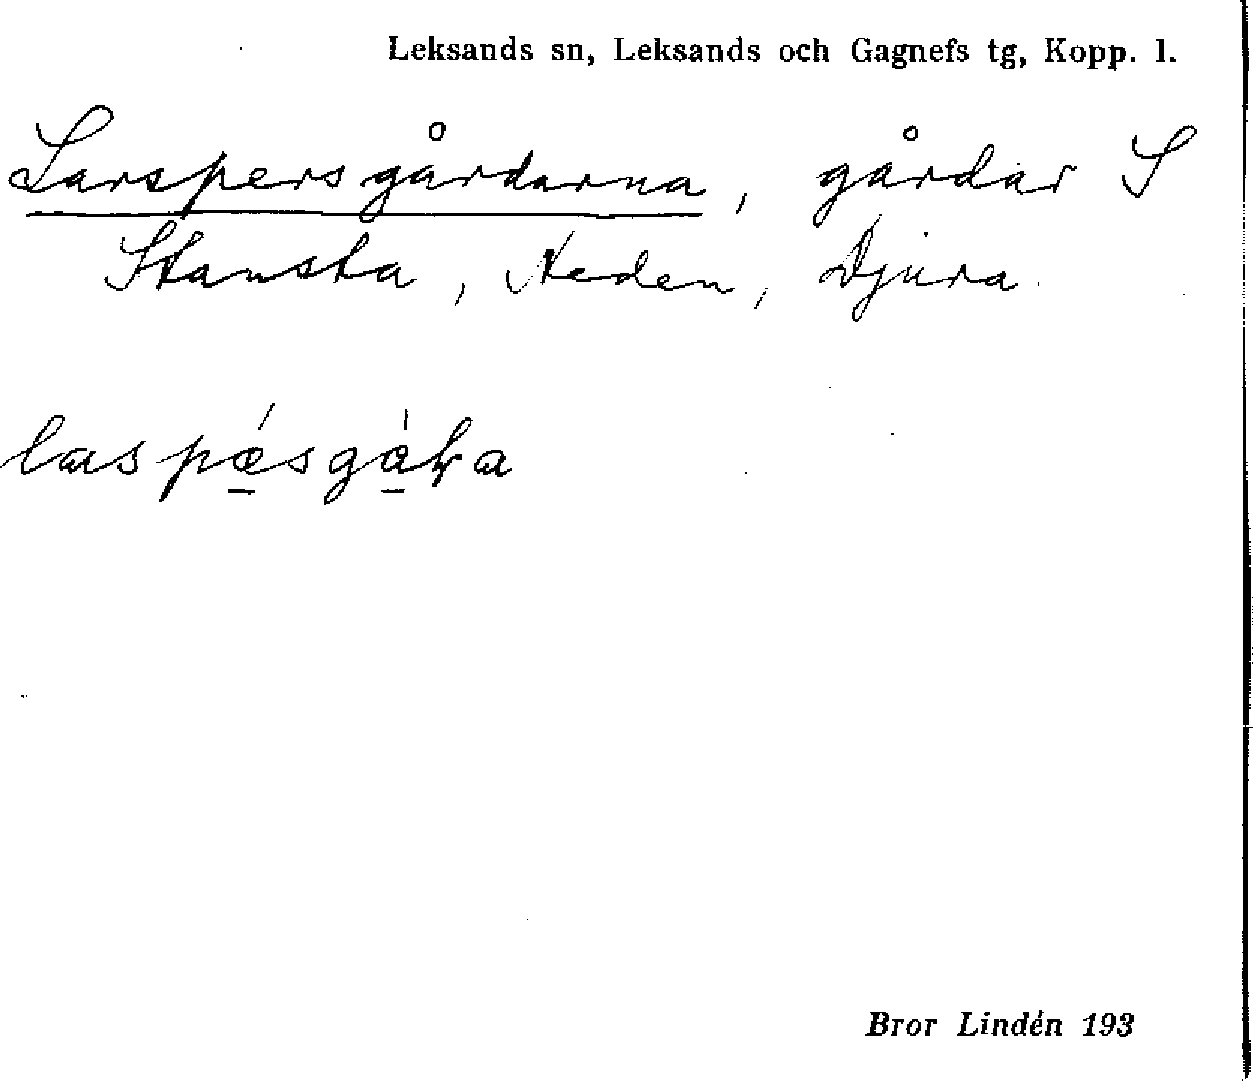 Leksands sn, Leksands och Gagnefs tg, Kopp. l.
Larspersgårdarna, gårdar S
Stansta, Neden, Djura.
Bror Lindén 193